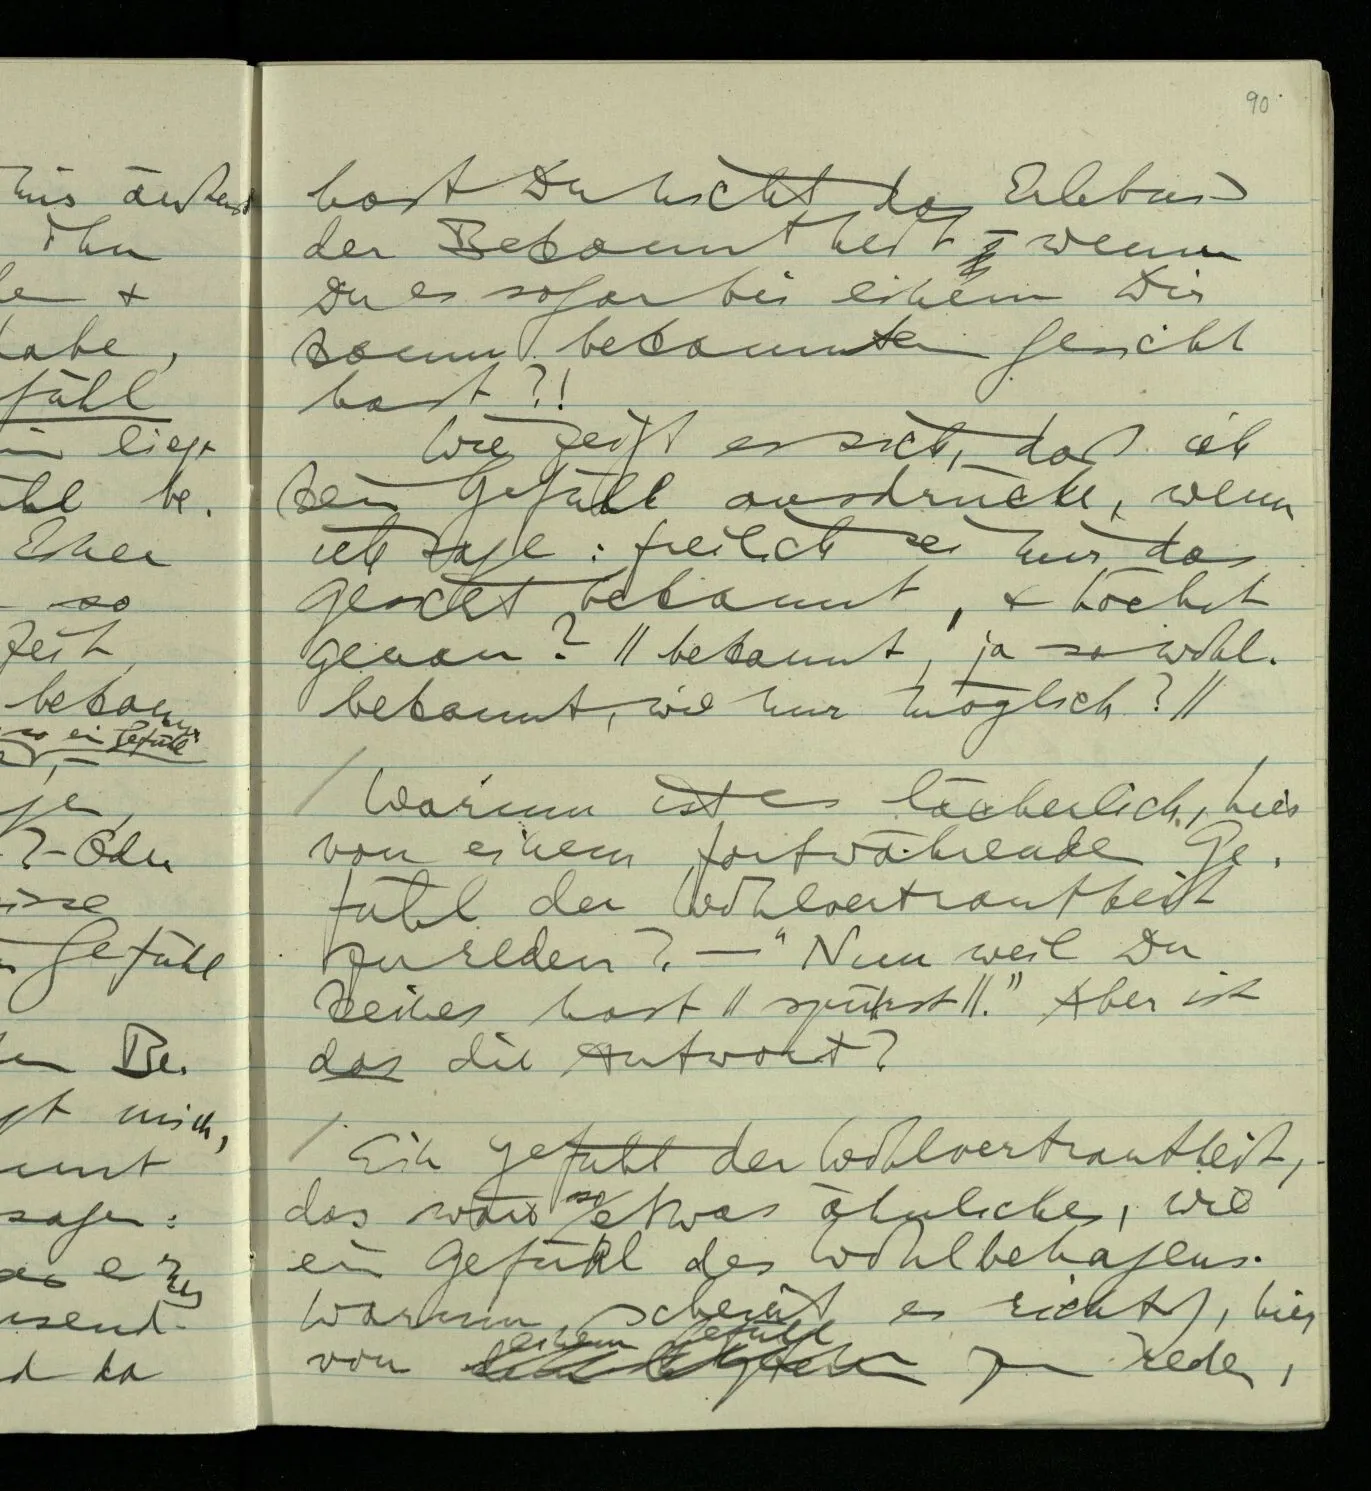 his äußerst
ihn
&
habe,
fühl
liegt
ühl be-
Einer
so
Zeit,
bekann
so ein Gefühl
je,
? – Oder
Gefühl
Be-
mich,
sagen:
es
da
90
hast Du nicht das Erlebnis
der Bekanntheit – wenn
Du es sogar bei einem Dir
kaum bekannten Gesicht
hast?!
Wie zeigt es sich, daß ich
kein Gefühl ausdrücke, wenn
ich sage: freilich sei mir das
Gesicht bekannt, & höchst
genau? // bekannt, ja so wohl-
bekannt, wie nur möglich? //
/ Warum ist es lächerlich, hier
von einem fortwährende Ge-
fühl der Wohlvertrautheit
zu reden? – "Nun weil Du
keines hast // spürst //." Aber ist
das die Antwort?
/ Ein Gefühl der Wohlvertrautheit,
das wäre so etwas ähnliches, wie
ein Gefühl des Wohlbehagens.
Warum scheint es richtig, hier
von einem Gefühl zu reden,